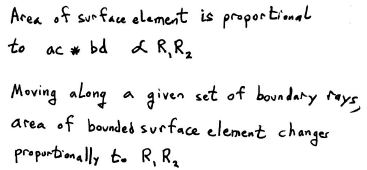 Area of surface element is proportional
to ac * bd α R₁R₂
Moving along a given set of boundary rays,
area of bounded surface element changes
proportionally to R₁R₂